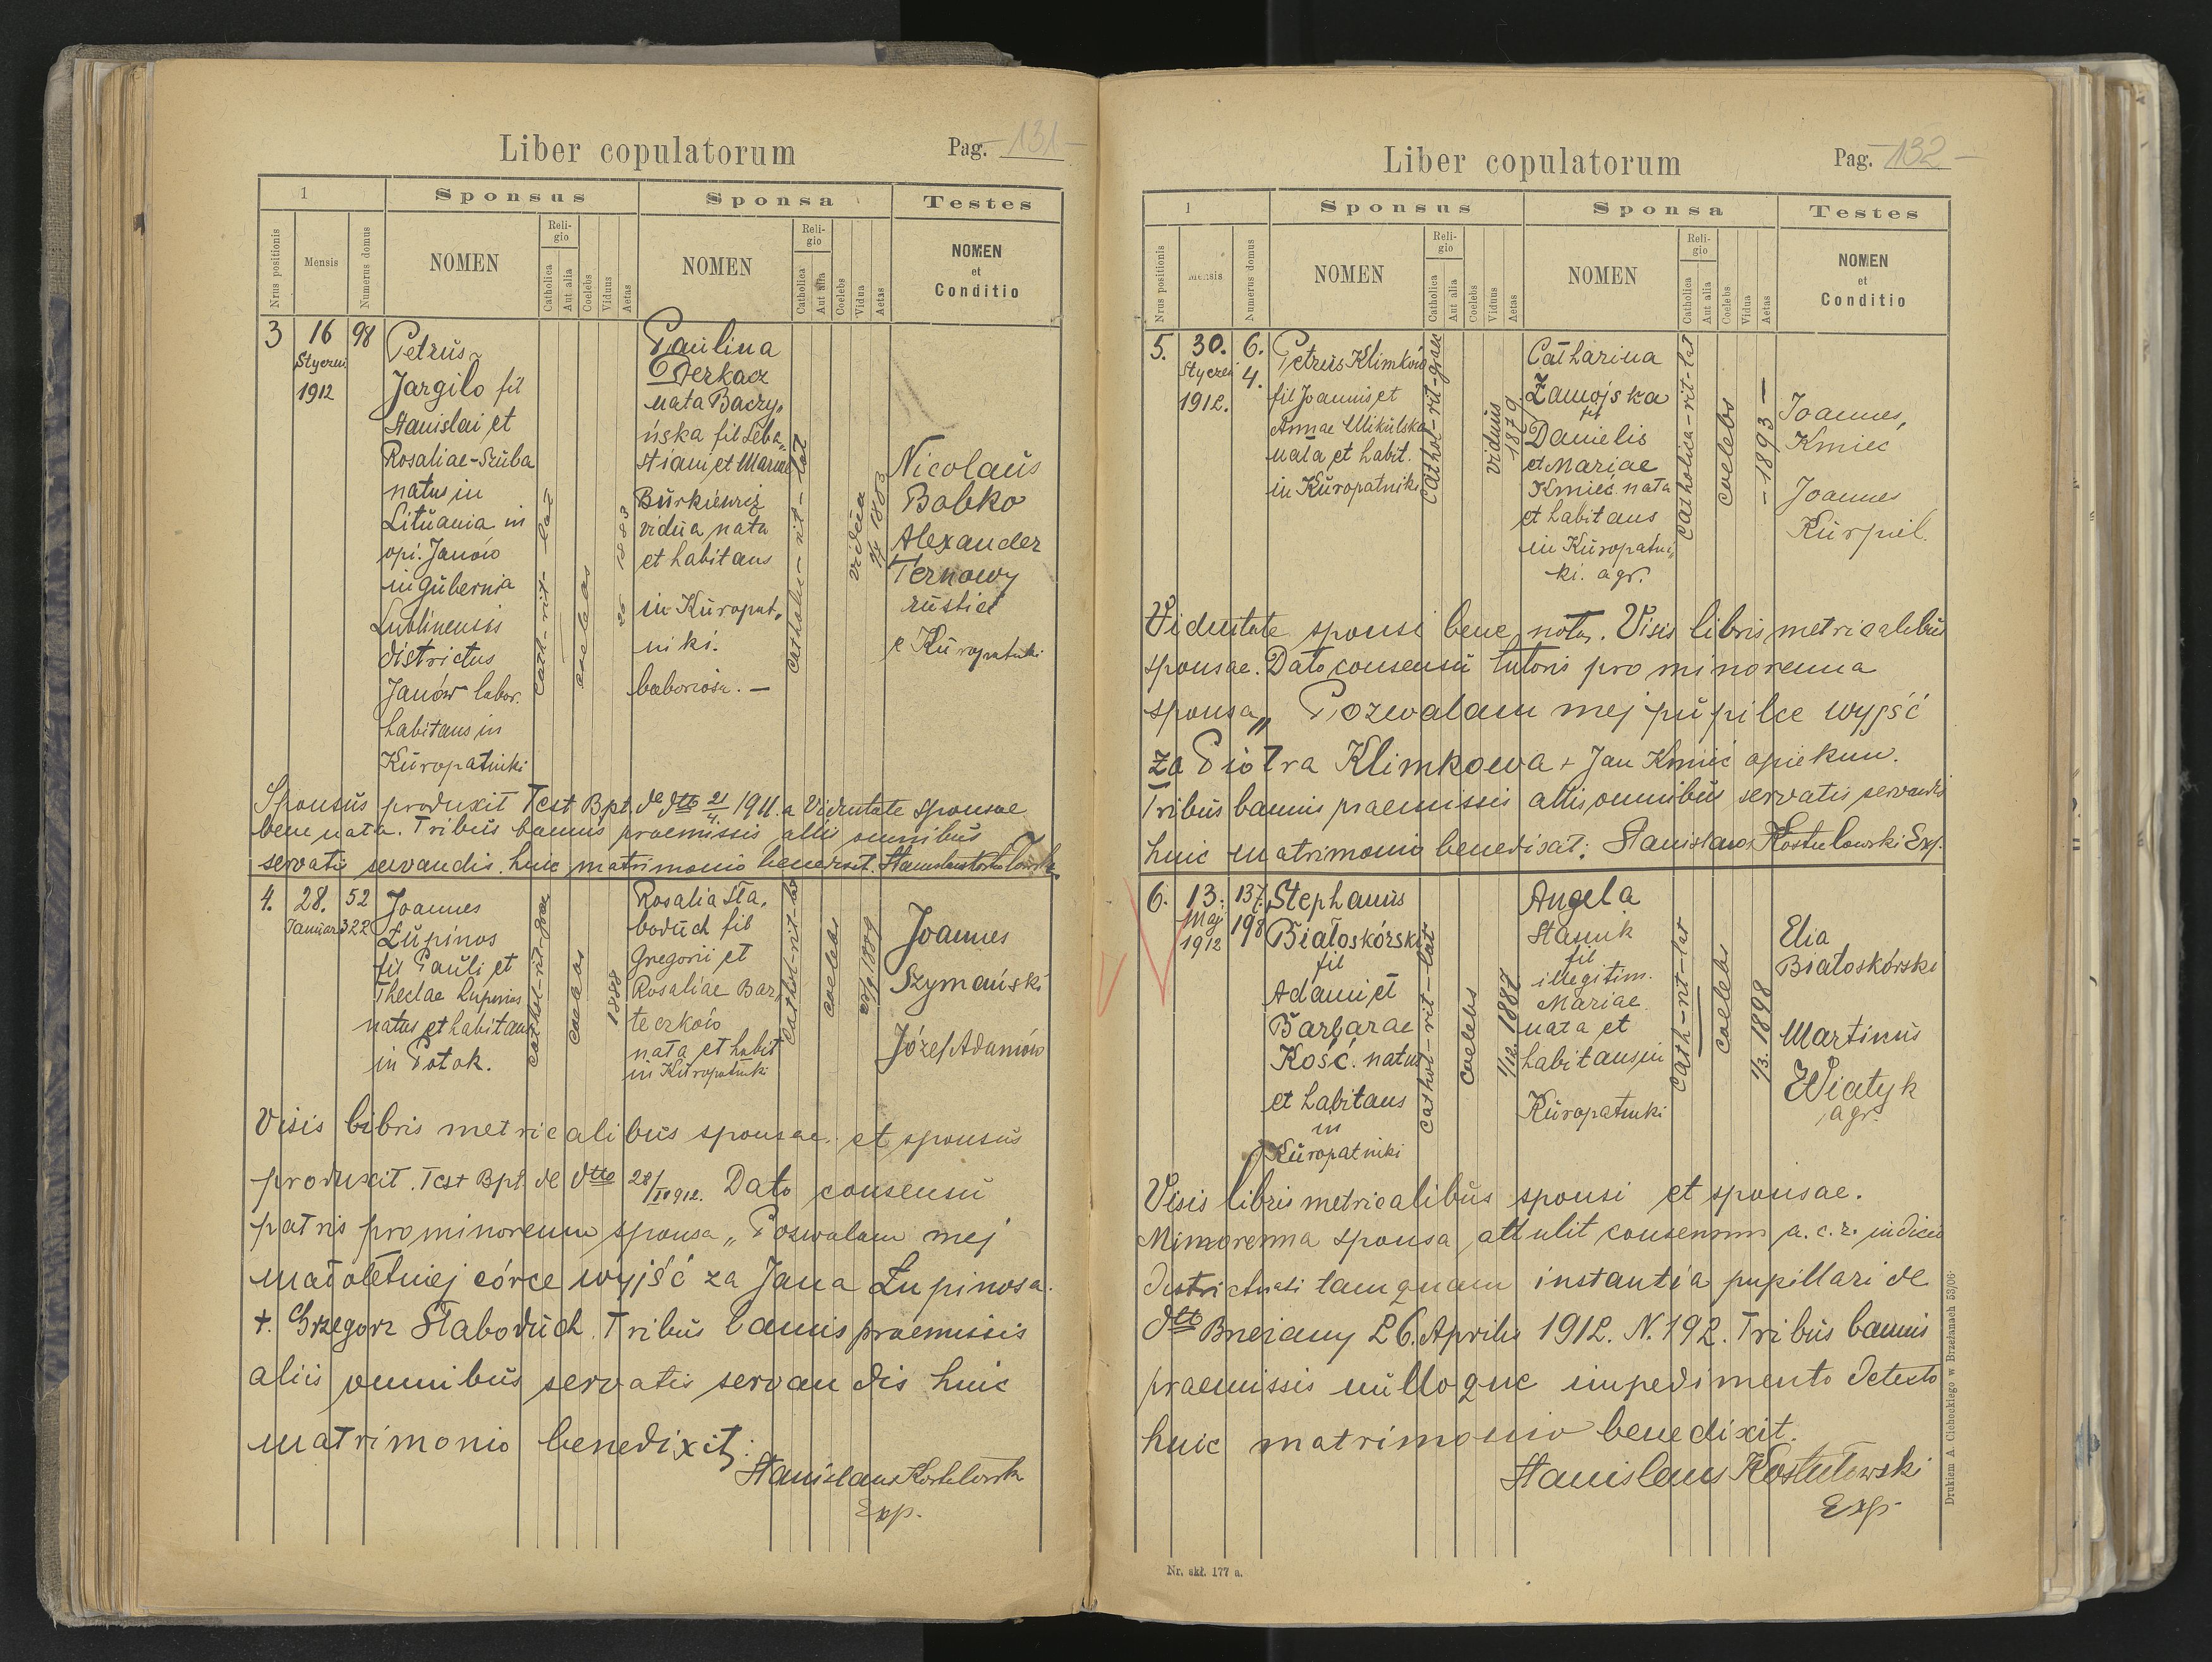 Liber copulatorum
Pag. 131
1
Sponsus
Sponsa
Testes
Nrus positionis
Mensis
Numerus domus
NOMEN
Religio
Catholica
Aut alia
Coelebs
Viduus
Aetas
NOMEN
Religio
Catholica
Aut alia
Coelebs
Vidua
Aetas
NOMEN
et
Conditio
3
16
Styczni
1912
98
Petrus
Jargilo fil
Stanislai et
Rosaliae-Szuba
natus in
Lituania in
opi. Janów
in gubernia
Lublinensis
districtus
Janów labor.
habitans in
Kuropatniki
cath-rit-lat
coelebs
1883
Paulina
Derkacz
nata Baczy„
ńska fil Seba„
stiani et Mariae
Burkiewicz
vidua nata
et habitans
in Kuropat„
niki.
laboriosa. —
cathol-rit-lat
vidua
1883
Nicolaus
Bobko
Alexander
Ternowy
rustici
e Kuropatniki
Sponsus produxit Test Bpt. de dtto 21/4. 1911. a Viduitate sponsae
bene nata. Tribus bannis praemissis aliis omnibus
servatis servandis huic matrimonio benedixit.
4.
28.
Januar
52
322
Joannes
Łupinos
fil Pauli et
Theclae Lupinos
natus et habitans
in Potok.
cathol-rit-graec
coelebs
1888
Rosalia Sła„
boduch fil
Gregorii et
Rosaliae Bar„
teczków
nata et habit
in Kuropatniki
cathol-rit-lat
coelebs
1889
Joannes
Szymański
Józef Adamów
Visis libris metricalibus sponsae et sponsus
produxit. Test Bpt de dtto 28/ 1912. Dato consensu
patris pro minorenna sponsa „Pozwalam mej
małoletniej córce wyjść za Jana Łupinosa.
+. Grzegorz Słaboduch. Tribus bannis praemissis
aliis omnibus servatis servandis huic
matrimonio benedixit:
Stanislaus Kostulowski
Exp.
Liber copulatorum
Pag. 132
1
Sponsus
Sponsa
Testes
Nrus positionis
Mensis
Numerus domus
NOMEN
Religio
Catholica
Aut alia
Coelebs
Viduus
Aetas
NOMEN
Religio
Catholica
Aut alia
Coelebs
Vidua
Aetas
NOMEN
et
Conditio
5.
30.
Styczeń
1912.
6.
4.
Petrus Klimków
fil Joannis et
Annae Mikulska
nata et habit.
in Kuropatniki
cathol-rit-graec
viduus
1879
Catharina
Zamojska
fil
Danielis
et Mariae
Kmieć nata
et habitans
in Kuropatni„
ki. agr.
catholica-rit-lat
coelebs
-1893-
Joannes,
Kmiec
Joannes
Kurpiel.
Viduitate sponsi bene nota. Visis libris metricalibus
sponsae. Dato consensu tutoris pro minorenna
sponsa„ Pozwalam mej pupilce wyjść
za Piotra Klimkowa + Jan Kmieć opiekun.
Tribus bannis praemissis aliis omnibus servatis servandis
huic matrimonio benedixat: Stanislaus Kostulowski Exp.
6.
13.
Maj
1912
137.
198
Stephanus
Białoskórski
fil
Adami et
Barbarae
Kość. natus
et habitans
in
Kuropatniki
cathol-rit-lat
coelebs
1/12. 1887
Angela
Stasiuk
fil
illegitim.
Mariae
nata et
habitans in
Kuropatniki
cath-rit-lat
coelebs
1/3. 1898
Elia
Białoskórski
Martinus
Wiatyk
agr.
Visis libris metricalibus sponsi et sponsae.
Minorenna sponsa attulit consensum a. c. r. iudicio
districtuali tamquam instantia pupillari de
dtto Brzeżany 26. Aprilis 1912. N. 192. Tribus bannis
praemissis nulloque impedimento detecto
huic matrimonio benedixit.
Stanislaus Kostulowski
Exp.
Drukiem A Cichockiego w Brzeżanach 53/06.
Nr. skł. 177 a.